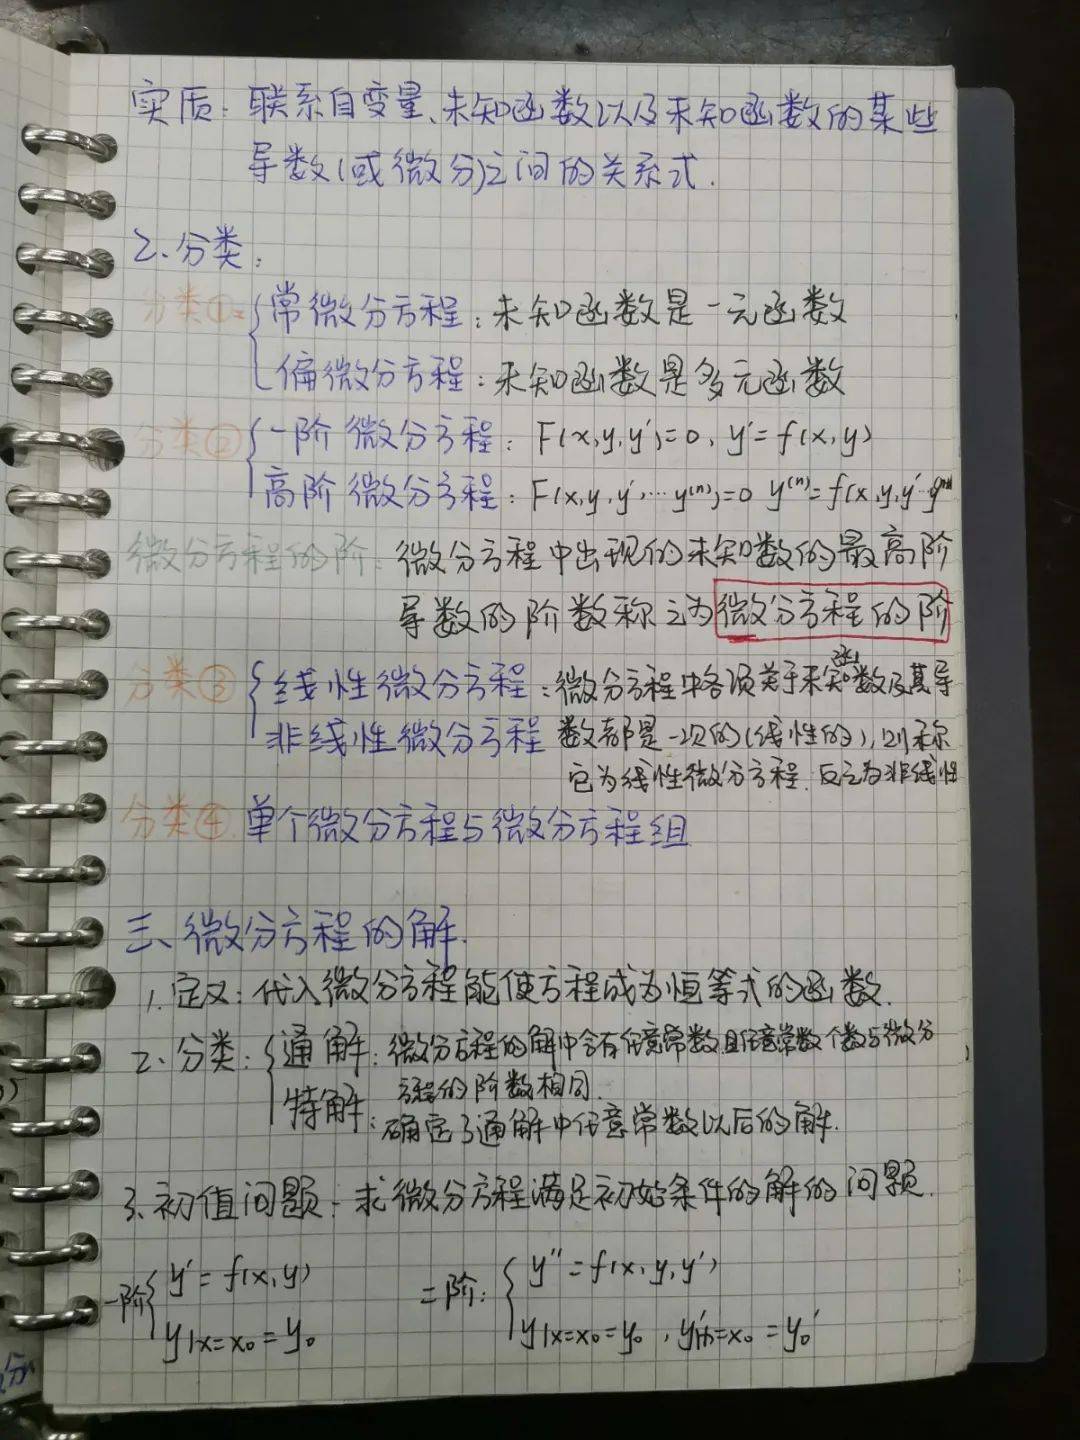 实质：联系自变量、未知函数以及未知函数的某些
导数(或微分)之间的关系式.
2.分类：
分类①：{常微分方程：未知函数是一元函数
偏微分方程：未知函数是多元函数
分类②{一阶微分方程：F(x,y,y')=0, y'=f(x,y)
高阶微分方程：F(x,y,y',…y⁽ⁿ⁾)=0 y⁽ⁿ⁾=f(x,y,y'…y⁽ⁿ⁻¹⁾
微分方程的阶：微分方程中出现的未知数的最高阶
导数的阶数称之为微分方程的阶
分类③{线性微分方程：微分方程中各项关于未知函数及其导
非线性微分方程 数都是一次的(线性的),则称
它为线性微分方程.反之为非线性
分类④.单个微分方程与微分方程组
三、微分方程的解.
1.定义：代入微分方程能使方程成为恒等式的函数.
2.分类：{通解：微分方程的解中含有任意常数且任意常数个数与微分
方程的阶数相同.
特解：确定了通解中任意常数以后的解.
3.初值问题：求微分方程满足初始条件的解的问题.
一阶{y'=f(x,y) 二阶：{y''=f(x,y,y')
y|x=x₀=y₀ y|x=x₀=y₀ , y'|x=x₀=y₀'